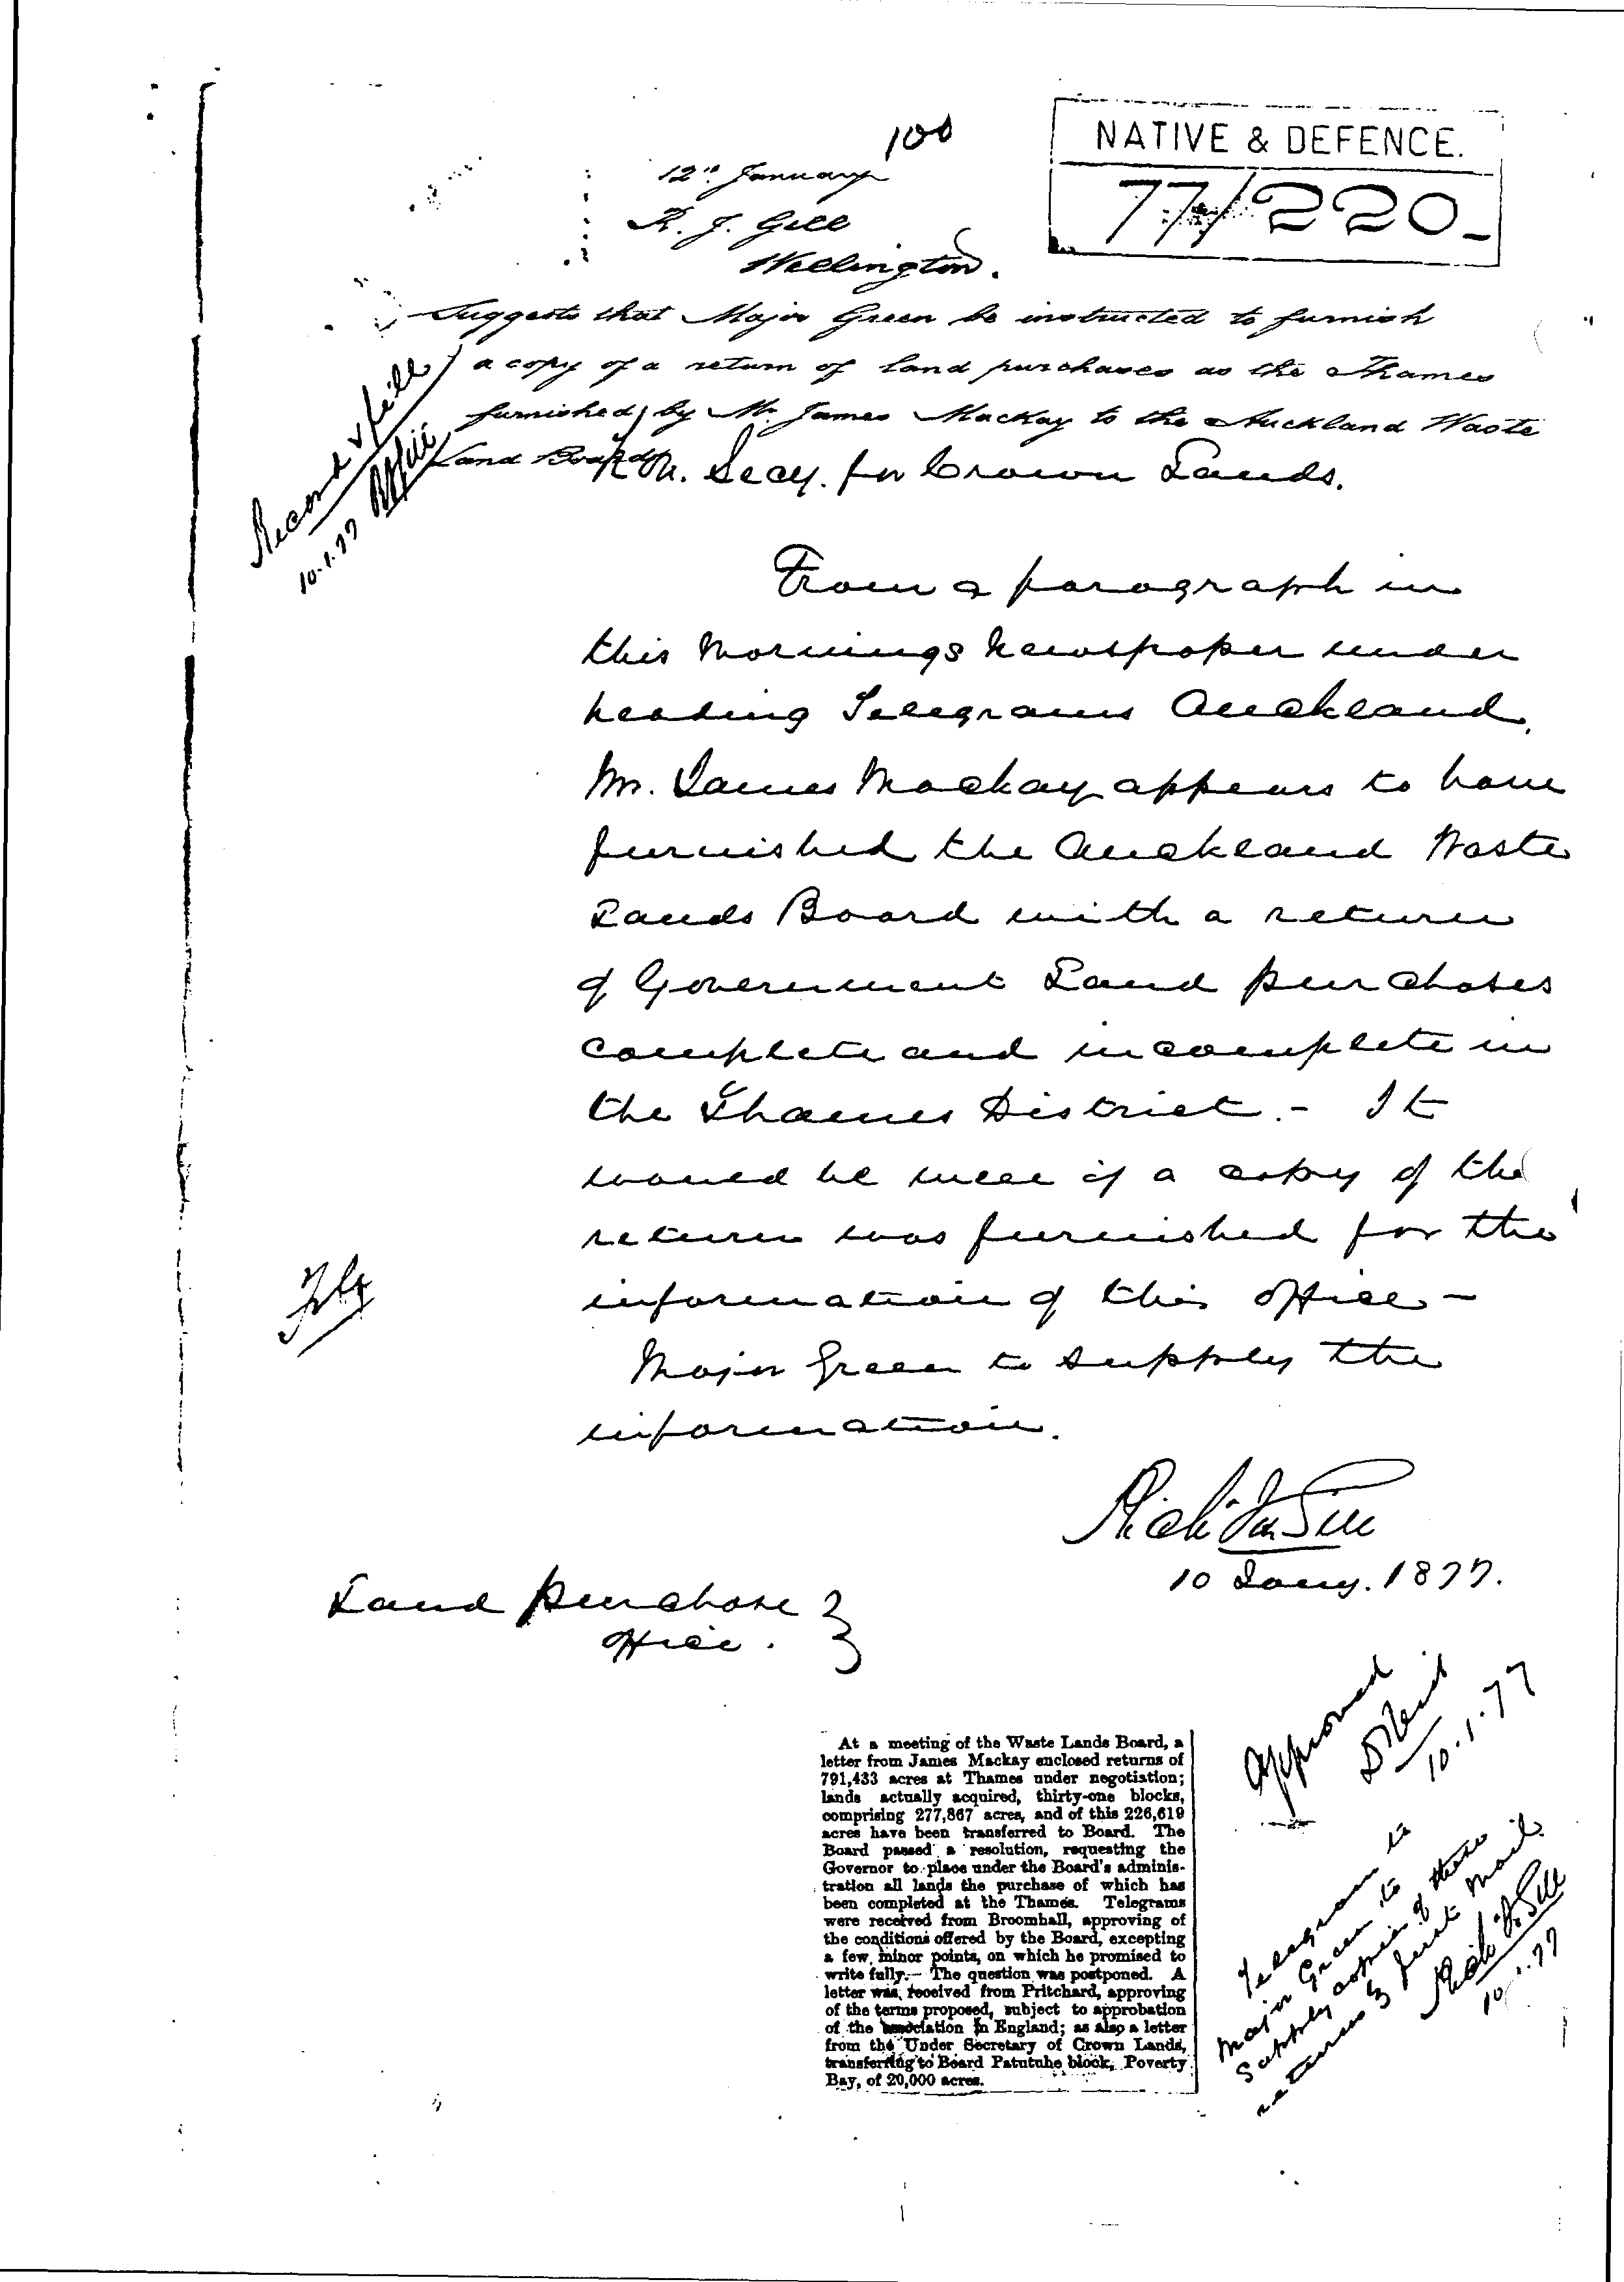 100
NATIVE & DEFENCE.
77/220
12th January
R. J. Gill
Wellington.
Suggests that Major Green be instructed to furnish
a copy of a return of land purchases as the Thames
furnished by Mr James Mackay to the Auckland Waste
Land Board
Record & file
10.1.77
Secy. for Crown Lands.
From a paragraph in
this Mornings Newspaper under
heading Telegrams Auckland.
Mr. James Mackay appears to have
furnished the Auckland Waste
Lands Board with a return
of Government Land purchases
complete and incomplete in
the Thames District. - It
would be well if a copy of the
return was furnished for the
information of this office -
Major Green to supply the
information.
Rich Jn Gill
10 Jany. 1877.
Land purchase
office.
Approved
10.1.77
Telegram to
Major Green to
supply copies of these
returns by first mail.
Rich Jn Gill
10.1.77
At a meeting of the Waste Lands Board, a
letter from James Mackay enclosed returns of
791,433 acres at Thames under negotiation;
lands actually acquired, thirty-one blocks,
comprising 277,867 acres, and of this 226,619
acres have been transferred to Board. The
Board passed a resolution, requesting the
Governor to place under the Board's adminis-
tration all lands the purchase of which has
been completed at the Thames. Telegrams
were received from Broomhall, approving of
the conditions offered by the Board, excepting
a few minor points, on which he promised to
write fully.— The question was postponed. A
letter was received from Pritchard, approving
of the terms proposed, subject to approbation
of the association in England; as also a letter
from the Under Secretary of Crown Lands,
transferring to Board Patutuhe block, Poverty
Bay, of 20,000 acres.